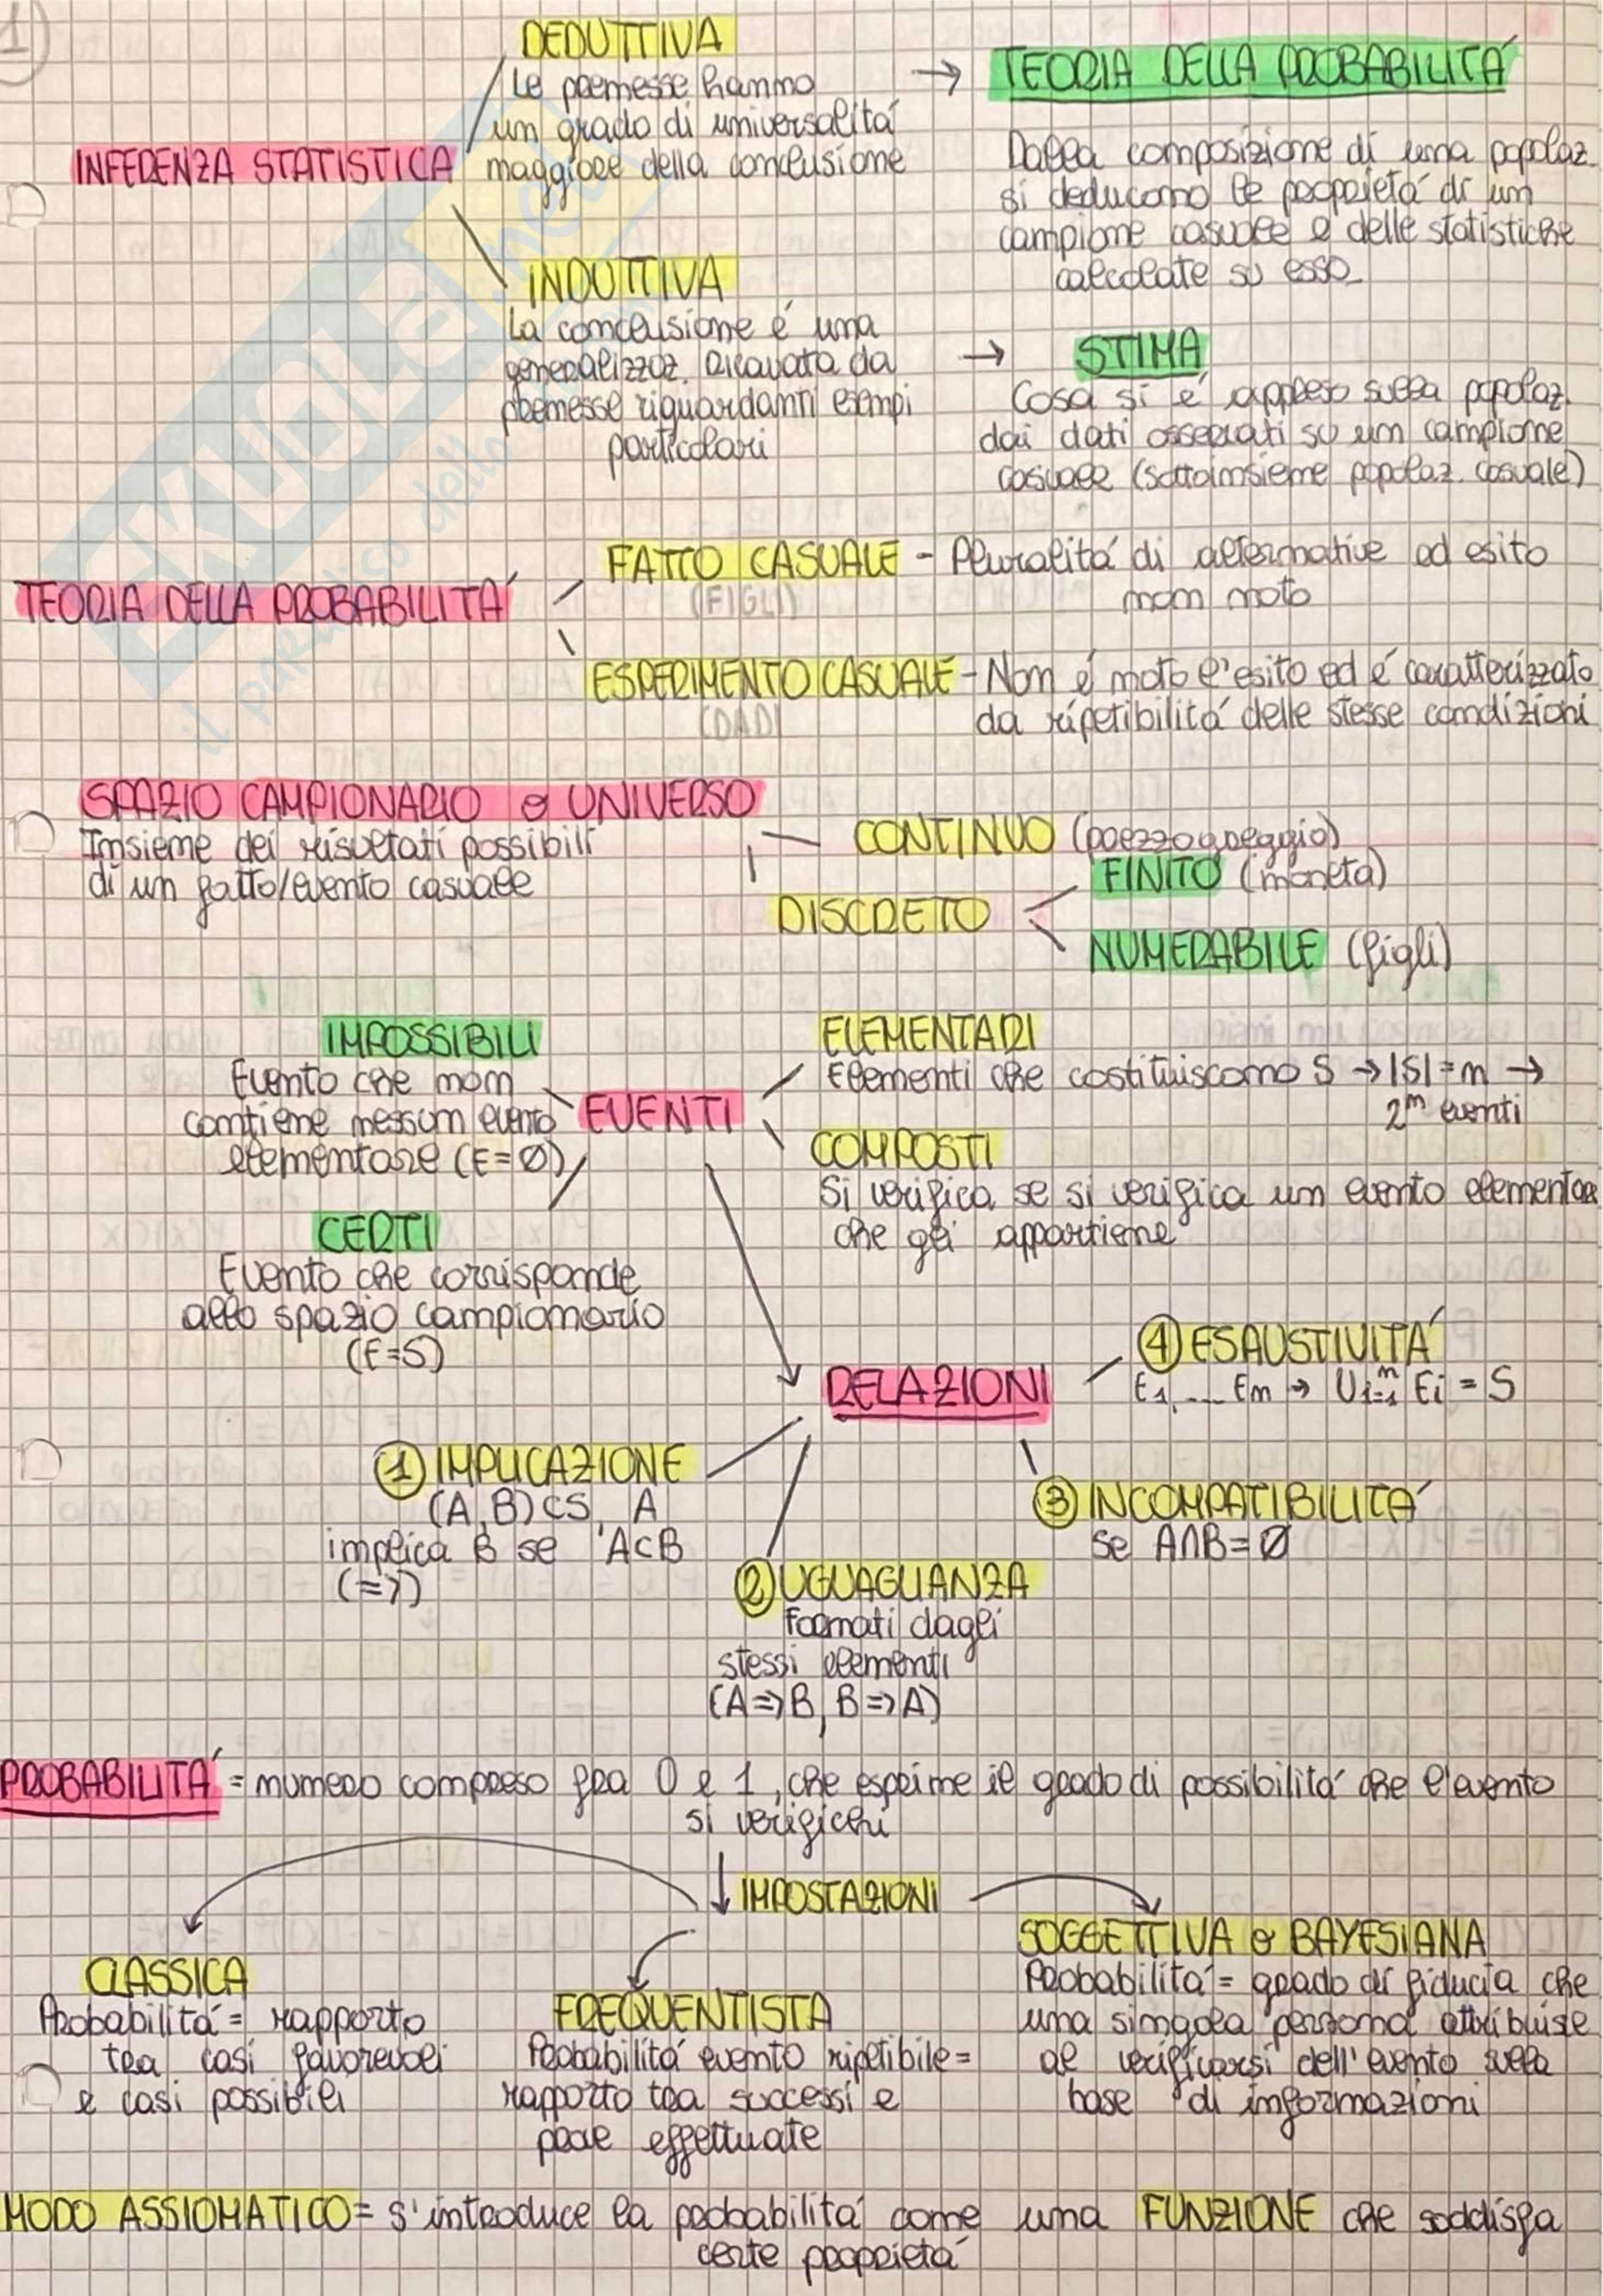 1)
DEDUTTIVA
Le premesse hanno
un grado di universalitá
maggiore della conclusione
→ TEORIA DELLA PROBABILITÁ
Dalla composizione di una popolaz.
si deducono le proprietá di un
campione casuale e delle statistiche
calcolate su esso
INFERENZA STATISTICA
INDUTTIVA
La conclusione é una
generalizzaz. ricavata da
premesse riguardanti esempi
particolari
→ STIMA
Cosa si é appreso sulla popolaz.
dai dati osservati su un campione
casuale (sottoinsieme popolaz. casuale)
TEORIA DELLA PROBABILITÁ
FATTO CASUALE - Pluralitá di alternative ed esito
(FIGLI) non noto
ESPERIMENTO CASUALE - Non é noto l'esito ed é caratterizzato
(DADI da ripetibilitá delle stesse condizioni
SPAZIO CAMPIONARIO o UNIVERSO
Insieme dei risultati possibili
di un fatto/evento casuale
CONTINUO (prezzo greggio)
DISCRETO
FINITO (moneta)
NUMERABILE (figli)
IMPOSSIBILI
Evento che non
contiene nessun evento
elementare (E=Ø)
EVENTI
ELEMENTARI
Elementi che costituiscono S → |S|=n →
2ⁿ eventi
COMPOSTI
Si verifica se si verifica un evento elementare
che gli appartiene
CERTI
Evento che corrisponde
allo spazio campionario
(E=S)
RELAZIONI
④ ESAUSTIVITÁ
E1,.... En → Uᵢ₌₁ⁿ Ei = S
① IMPLICAZIONE
(A,B)⊂S, A
implica B se A⊂B
(=>)
③ INCOMPATIBILITÁ
se A∩B=Ø
② UGUAGLIANZA
Formati dagli
stessi elementi
(A=>B, B=>A)
PROBABILITÁ = numero compreso fra 0 e 1, che esprime il grado di possibilitá che l'evento
si verifichi
↓ IMPOSTAZIONI
CLASSICA
Probabilitá = rapporto
tra casi favorevoli
e casi possibili
FREQUENTISTA
Probabilitá evento ripetibile =
rapporto tra successi e
prove effettuate
SOGGETTIVA o BAYESIANA
Probabilitá = grado di fiducia che
una singola persona attribuisce
al verificarsi dell'evento sulla
base di informazioni
MODO ASSIOMATICO = s'introduce la probabilitá come una FUNZIONE che soddisfa
certe proprietá
SKUOLA.net
il paradiso dello